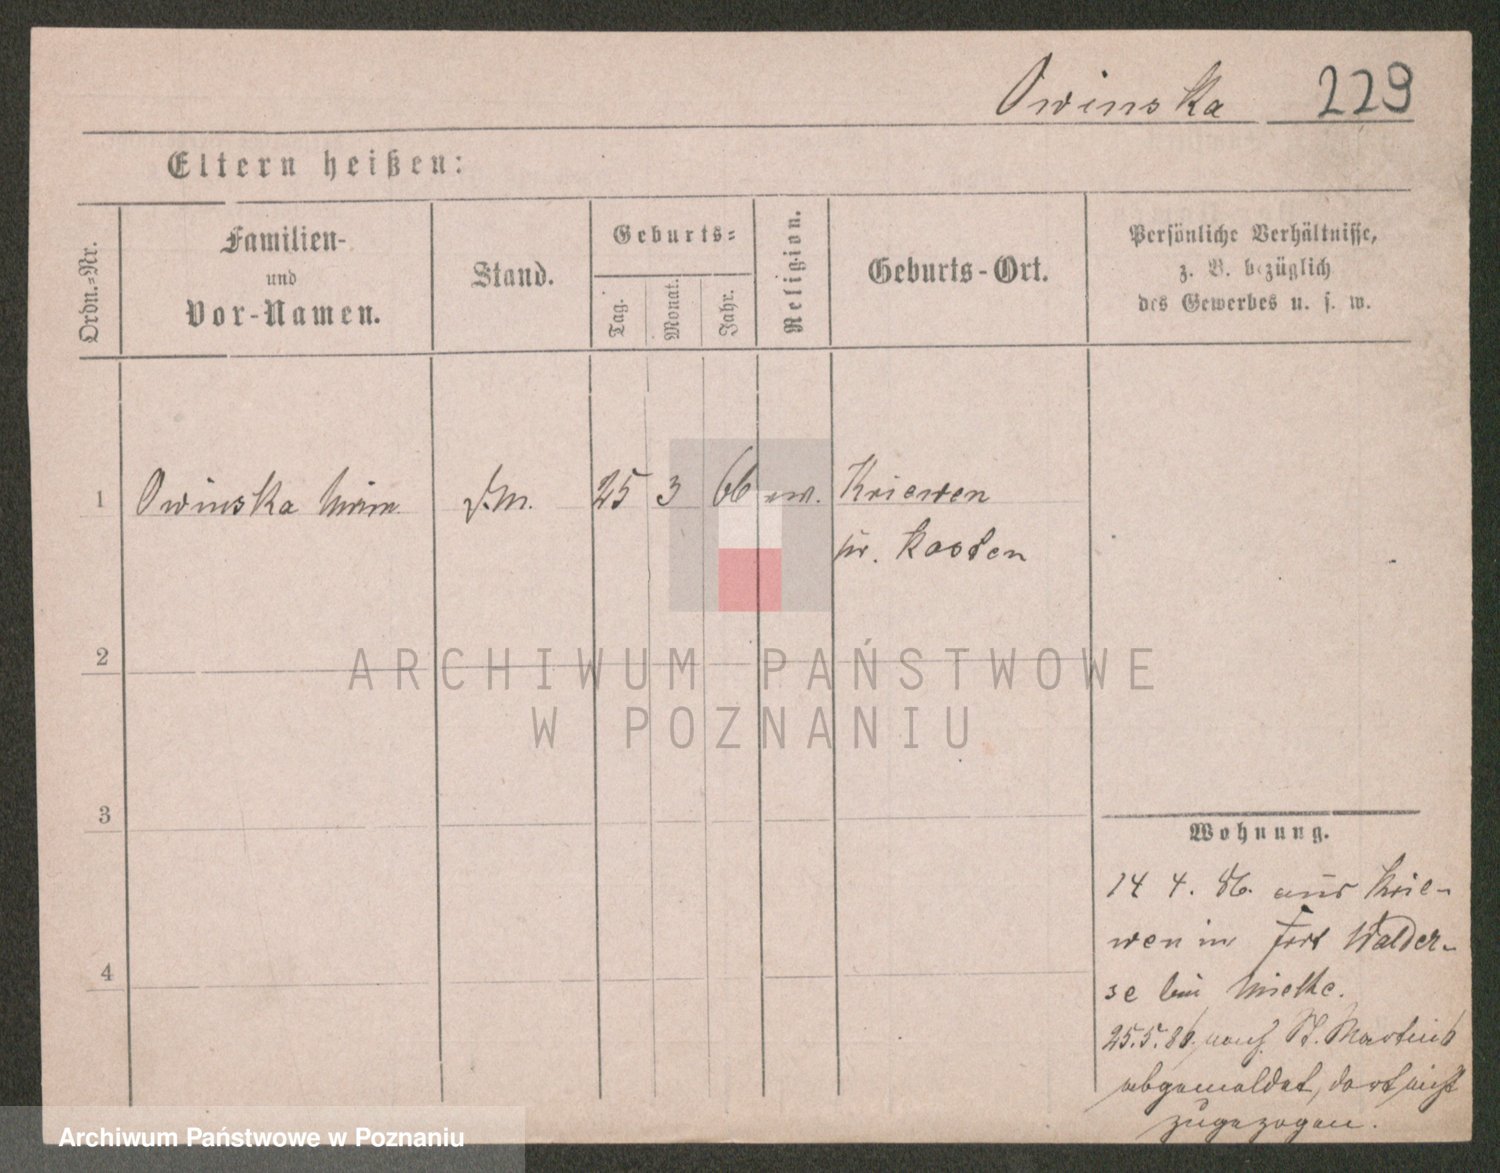 Owinska 229
Eltern heißen:
Ordn.-Nr.
Familien-
und
Vor-Namen.
Stand.
Geburts-
Tag.
Monat.
Jahr.
Religion.
Geburts-Ort.
Persönliche Verhältnisse,
z. B. bezüglich
des Gewerbes u. s. w.
1 Owinska 25 3 66 Kriewen
Kr. Kosten
2
3
4
Wohnung.
14 4. 86. aus Krie-
wen in Fort Walder-
se bei Mielke.
25.5.86. nach St. Martin 6
abgemeldet, dort nicht
zugezogen.
ARCHIWUM PAŃSTWOWE
W POZNANIU
Archiwum Państwowe w Poznaniu